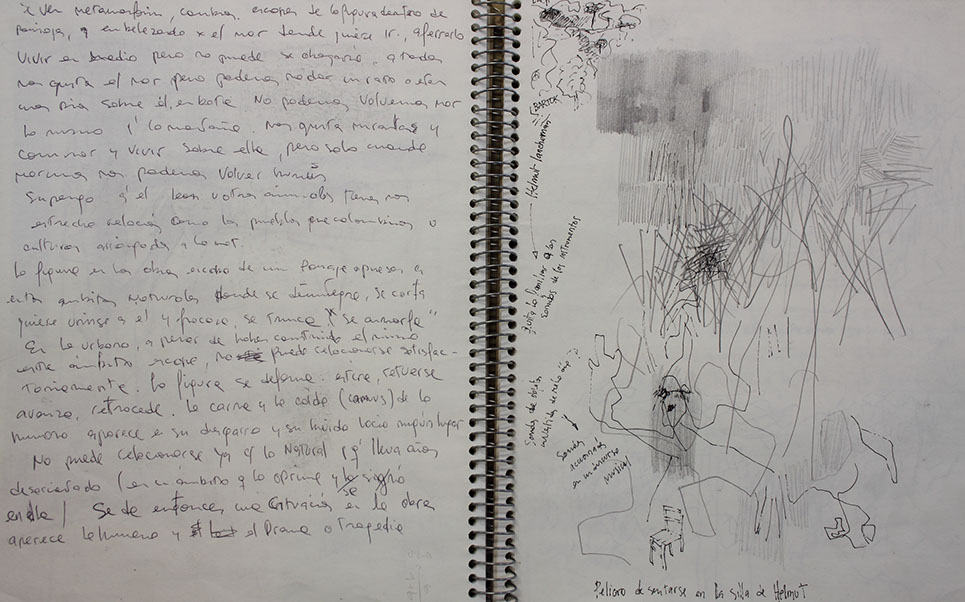 x ver metamorfosis, cambios, escapes de la figura dentro de
el mar donde quiere ir, aferrarlo
vivir en medio pero no puede se
nos gusta el mar pero podemos nadar un rato o estar
sobre él, en bote No podemos volvernos mar
lo mismo q' la montaña. Nos gusta mirarlas y
caminar y vivir sobre ella, pero solo cuando
morimos nos podemos volver
Supongo q' el león u otros animales tienen más
estrecha relación como los pueblos precolombinos o
culturas arraigadas a lo nat.
La figura en las obras, escapa de un paisaje
estos ámbitos naturales donde se desintegra, se corta
quiere unirse a él y fracasa, se trunca "se amorfa"
En lo urbano, a pesar de haber construido el mismo
este ámbito escapa, no puede relacionarse satisfac-
toriamente. La figura se deforma, estira, retuerce
avanza, retrocede. La carne y la caída (camus) de lo
humano aparece en su desgarro y su huida hacia ningún lugar
No puede relacionarse ya q' lo Natural
desorientado (en un ámbito q' lo oprime y
en ella) Se da entonces una en la obra
aparece lo humano y el Drama o Tragedia
BARTOK
Helmut Lanchamann
Quita lo familiar a los
sonidos de los instrumentos
Sonidos de objetos
Sonidos
en un universo
musical
Peligro de sentarse en la silla de Helmut